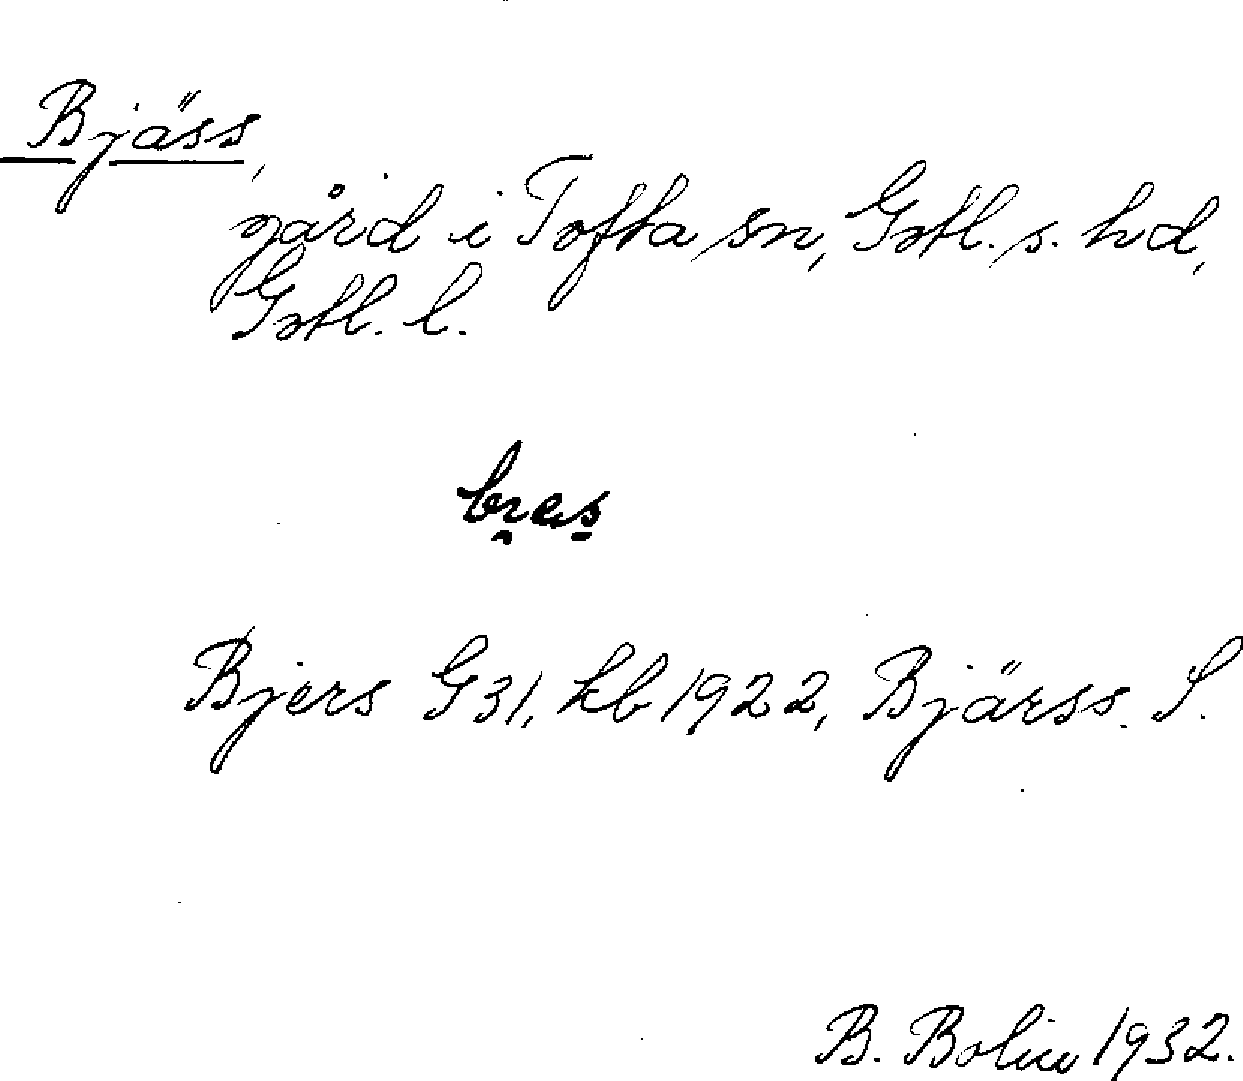 Bjäss,
gård i Tofta sn, Gotl. s. hd,
Gotl. l.
Bjers G31, kb 1922, Bjärss. S.
B. Bolin 1932.